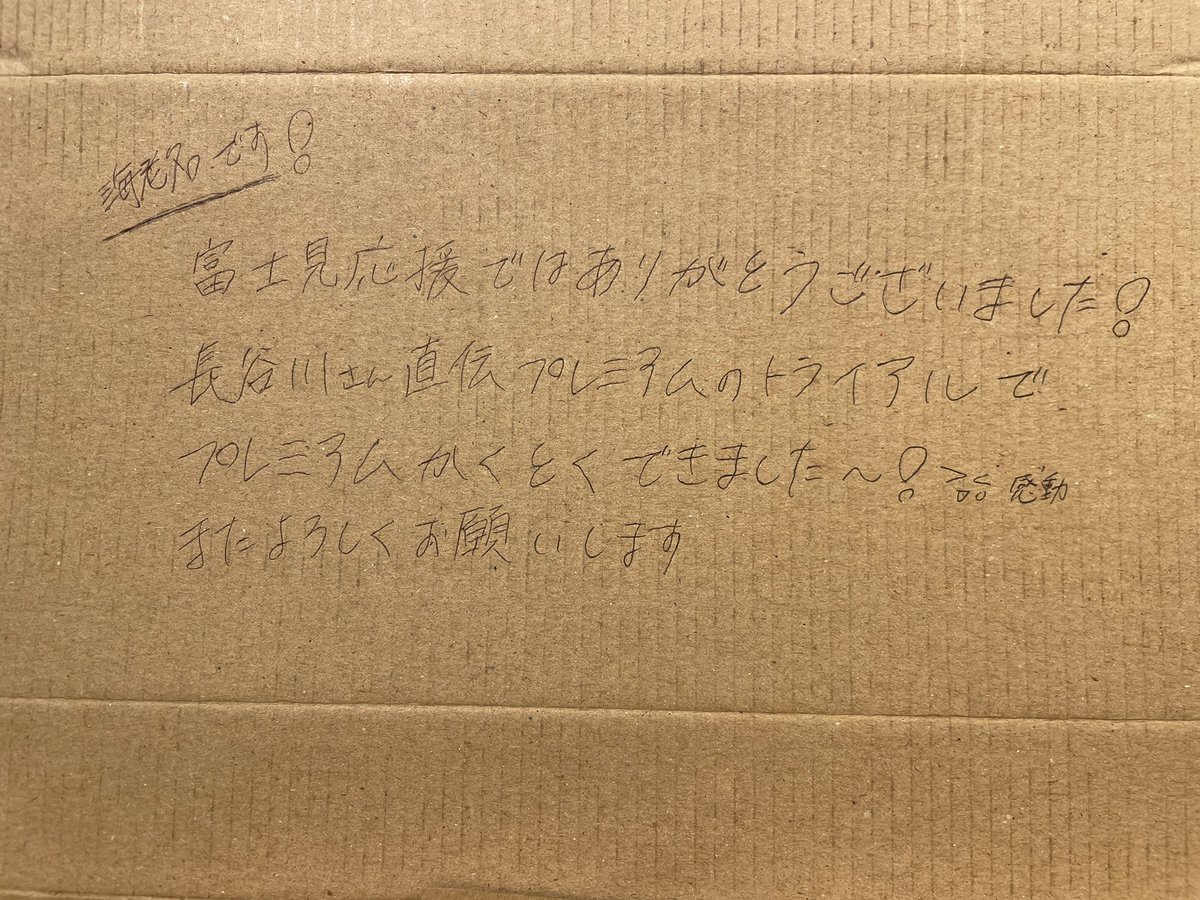 海老名です!
富士見応援ではありがとうございました!
長谷川さん直伝プレミアムのトライアルで
プレミアムかくとくできました〜! 感動
またよろしくお願いします